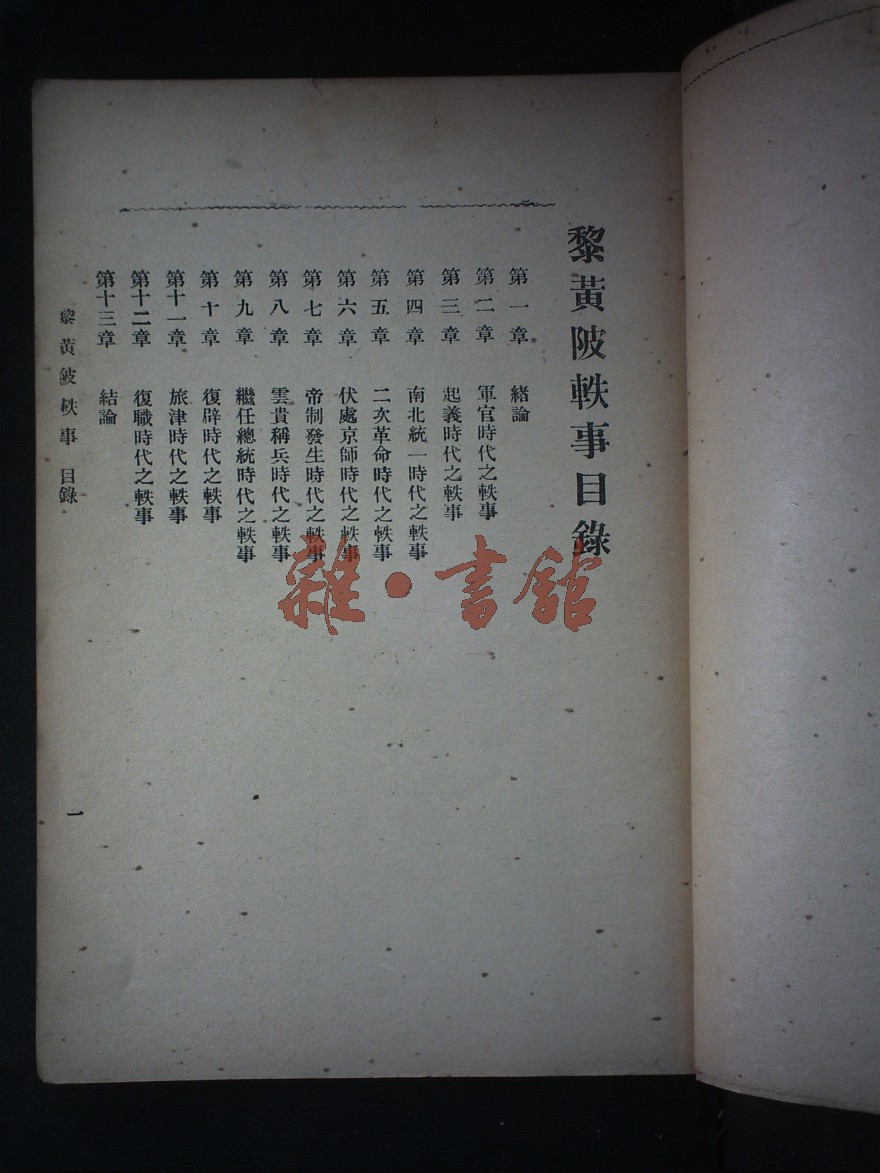 黎黃陂軼事目錄
第一章 緒論
第二章 軍官時代之軼事
第三章 起義時代之軼事
第四章 南北統一時代之軼事
第五章 二次革命時代之軼事
第六章 伏處京師時代之軼事
第七章 帝制發生時代之軼事
第八章 雲貴稱兵時代之軼事
第九章 繼任總統時代之軼事
第十章 復辟時代之軼事
第十一章 旅津時代之軼事
第十二章 復職時代之軼事
第十三章 結論
黎黃陂軼事 目錄
一
雜·書館